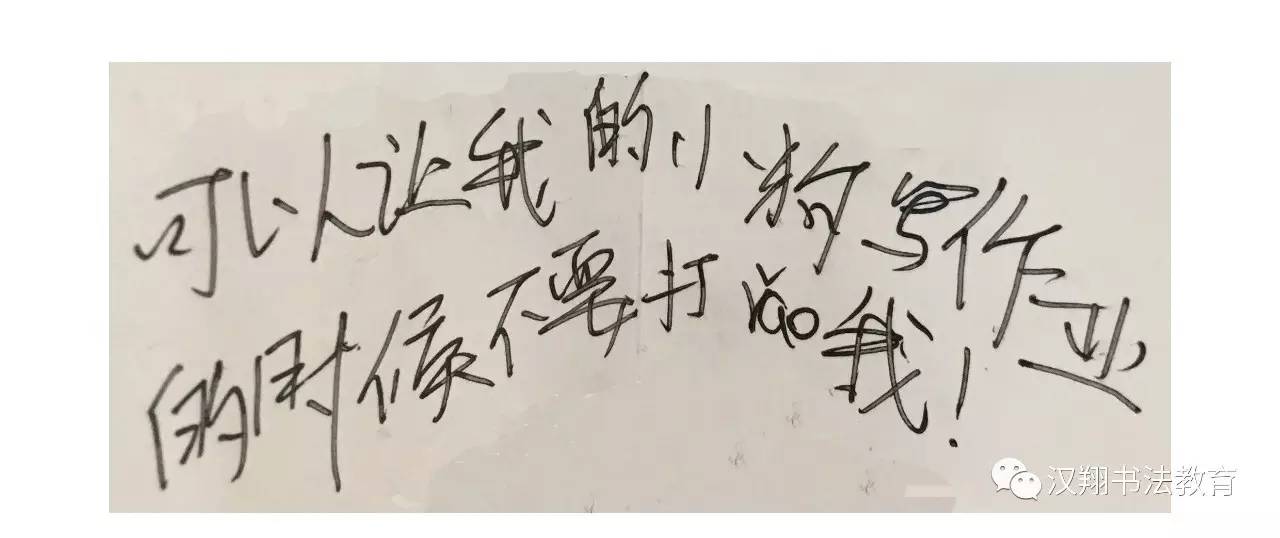 可以让我的小粉写作业
的时候不要打rǎo我!
汉翔书法教育